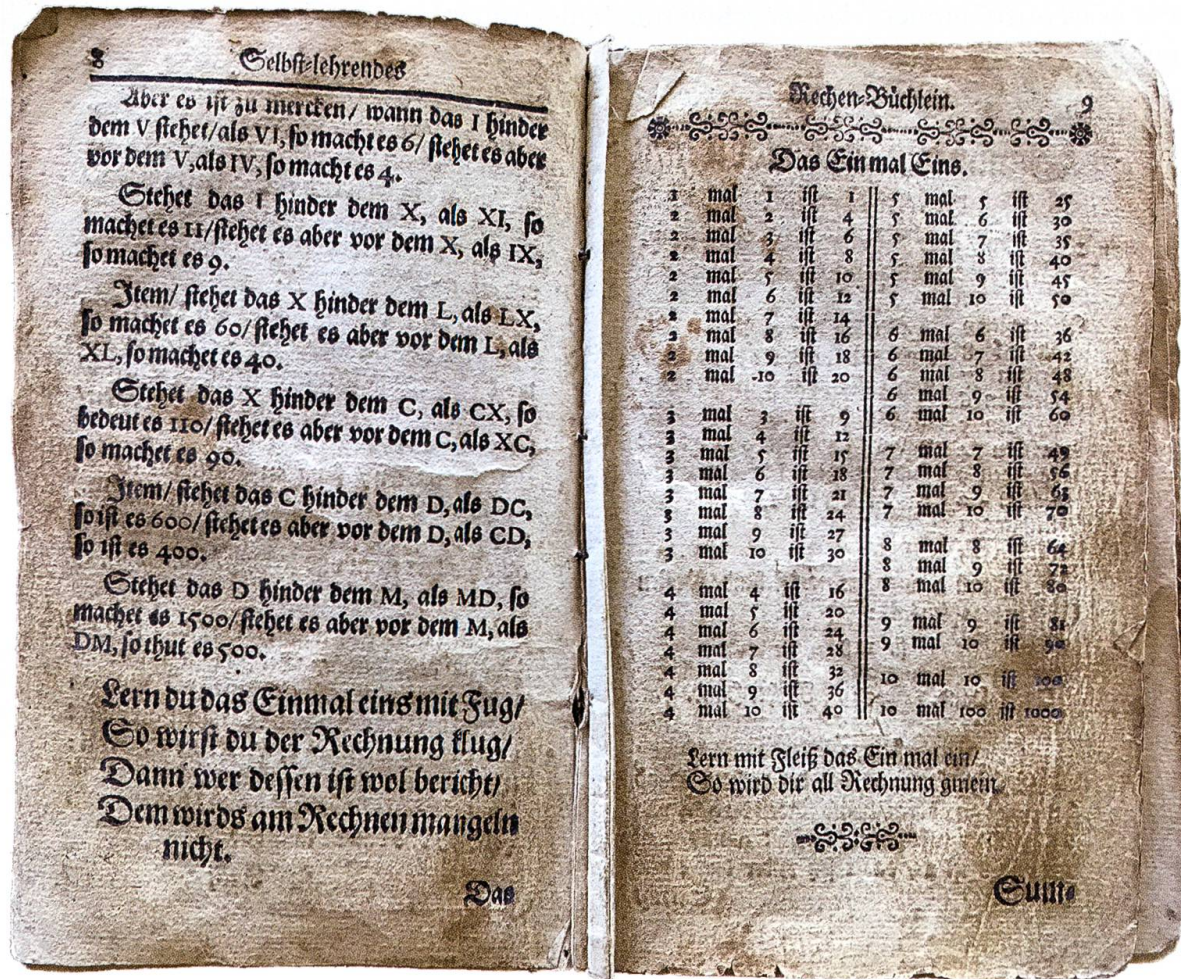 8 Selbst-lehrendes
Aber es ist zu mercken/ wann das I hinder
dem V stehet/als VI, so macht es 6/ stehet es aber
vor dem V, als IV, so macht es 4.
Stehet das I hinder dem X, als XI, so
machet es 11/stehet es aber vor dem X, als IX,
so machet es 9.
Item/ stehet das X hinder dem L, als LX,
so machet es 60/stehet es aber vor dem L, als
XL, so machet es 40.
Stehet das X hinder dem C, als CX, so
bedeut es 110/stehet es aber vor dem C, als XC,
so machet es 90.
Item/ stehet das C hinder dem D, als DC,
so ist es 600/ stehet es aber vor dem D, als CD,
so ist es 400.
Stehet das D hinder dem M, als MD, so
machet es 1500/stehet es aber vor dem M, als
DM, so thut es 500.
Lern du das Einmal eins mit Fug/
So wirst du der Rechnung klug/
Dann wer dessen ist wol bericht/
Dem wirds am Rechnen mangeln
nicht.
Das
Rechen-Büchlein. 9
Das Ein mal Eins.
1 mal 1 ist 1
2 mal 2 ist 4
2 mal 3 ist 6
2 mal 4 ist 8
2 mal 5 ist 10
2 mal 6 ist 12
2 mal 7 ist 14
2 mal 8 ist 16
2 mal 9 ist 18
2 mal 10 ist 20
3 mal 3 ist 9
3 mal 4 ist 12
3 mal 5 ist 15
3 mal 6 ist 18
3 mal 7 ist 21
3 mal 8 ist 24
3 mal 9 ist 27
3 mal 10 ist 30
4 mal 4 ist 16
4 mal 5 ist 20
4 mal 6 ist 24
4 mal 7 ist 28
4 mal 8 ist 32
4 mal 9 ist 36
4 mal 10 ist 40
5 mal 5 ist 25
5 mal 6 ist 30
5 mal 7 ist 35
5 mal 8 ist 40
5 mal 9 ist 45
5 mal 10 ist 50
6 mal 6 ist 36
6 mal 7 ist 42
6 mal 8 ist 48
6 mal 9 ist 54
6 mal 10 ist 60
7 mal 7 ist 49
7 mal 8 ist 56
7 mal 9 ist 63
7 mal 10 ist 70
8 mal 8 ist 64
8 mal 9 ist 72
8 mal 10 ist 80
9 mal 9 ist 81
9 mal 10 ist 90
10 mal 10 ist 100
10 mal 100 ist 1000
Lern mit Fleiß das Ein mal ein/
So wird dir all Rechnung gmein.
Sum-